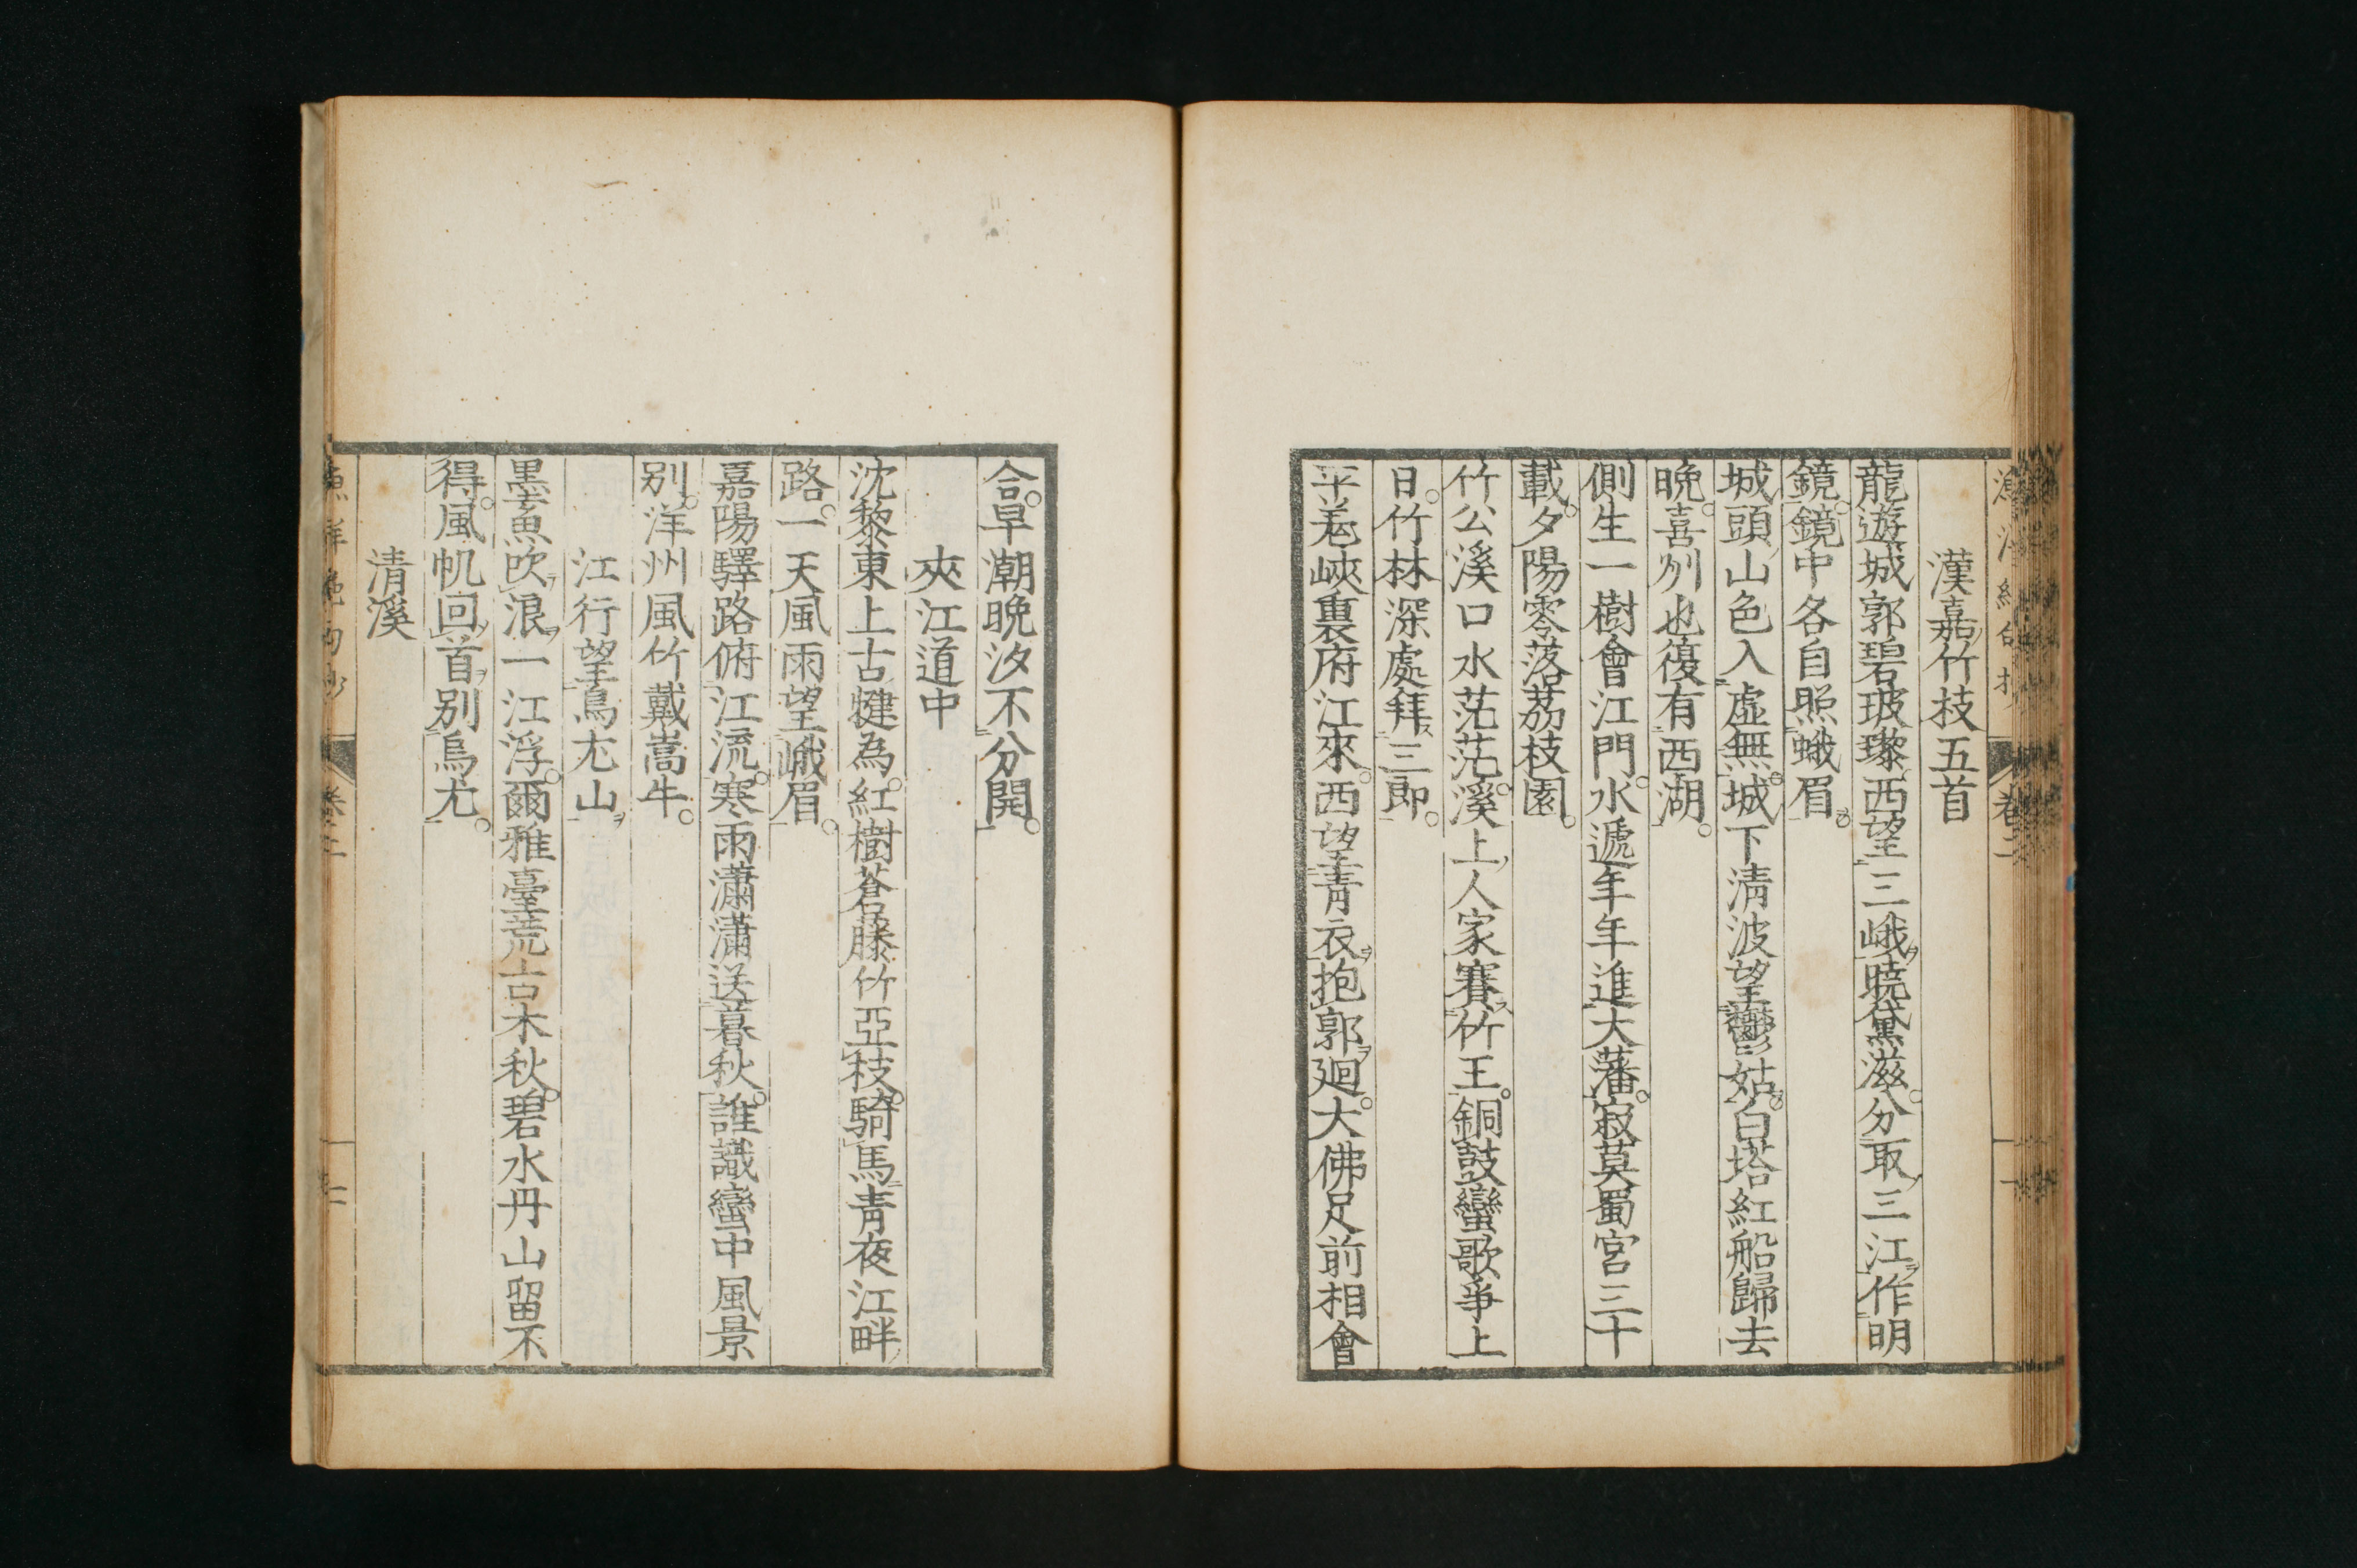 漢嘉竹枝五首
龍遊城郭碧玻瓈西望三峨曉黛滋。分取三江作明
鏡。鏡中各自照蛾眉。
城頭山色入虛無。城下清波望鬱姑。白塔紅船歸去
晩。喜列也復有西湖。
側生一樹會江門。水遞年年進大藩。寂莫蜀宮三十
載。夕陽零落荔枝園。
竹公溪口水茫茫。溪上人家賽竹王。銅鼓蠻歌爭上
日。竹林深處拜三郎。
平羌峽裏府江來。西望青衣抱郭廻。大佛足前相會
合。早潮晩汐不分開。
夾江道中
沈黎東上古犍為。紅樹蒼藤竹亞枝。騎馬青夜江畔
路。一天風雨望峨眉。
嘉陽驛路俯江流。寒雨瀟瀟送暮秋。誰識蠻中風景
別。洋州風竹戴嵩牛。
江行望烏尤山
墨魚吹浪一江浮。爾雅臺荒古木秋。碧水丹山留不
得。風帆回首別烏尤。
清溪
卷二